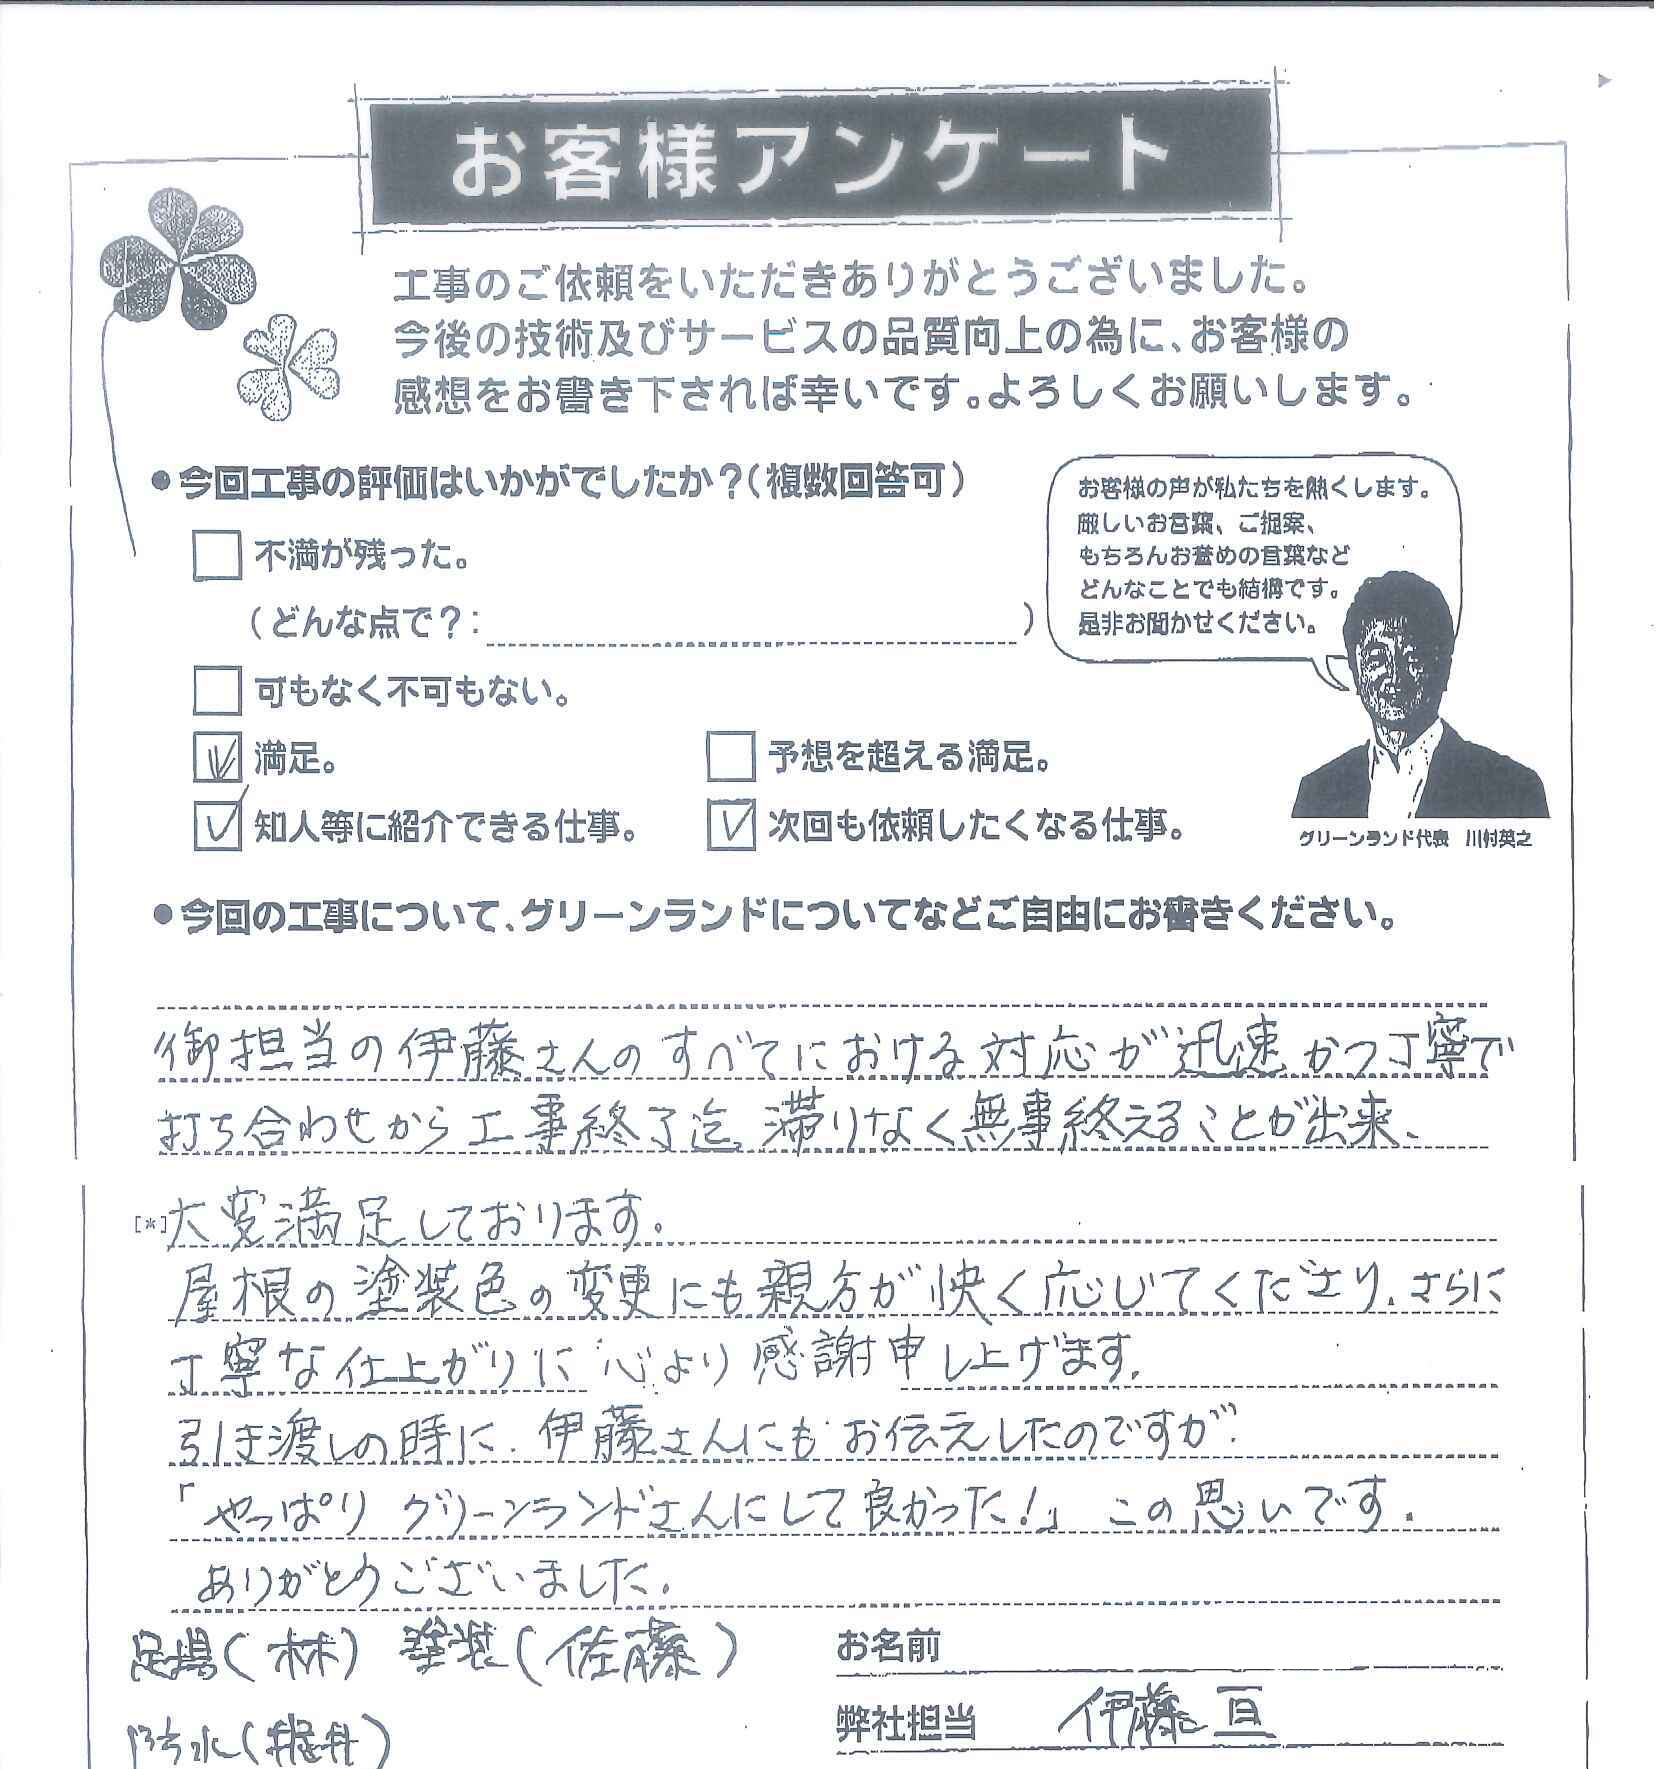 お客様アンケート
工事のご依頼をいただきありがとうございました。
今後の技術及びサービスの品質向上の為に、お客様の
感想をお書き下されば幸いです。よろしくお願いします。
●今回工事の評価はいかがでしたか？（複数回答可）
不満が残った。
（どんな点で？：　）
可もなく不可もない。
満足。
予想を超える満足。
知人等に紹介できる仕事。
次回も依頼したくなる仕事。
お客様の声が私たちを熱くします。
厳しいお言葉、ご提案、
もちろんお誉めの言葉など
どんなことでも結構です。
是非お聞かせください。
グリーンランド代表　川村英之
●今回の工事について、グリーンランドについてなどご自由にお書きください。
御担当の伊藤さんのすべてにおける対応が迅速かつ丁寧で
打ち合わせから工事終了迄、滞りなく無事終えることが出来、
[*]大変満足しております。
屋根の塗装色の変更にも親方が快く応じてくださり、さらに
丁寧な仕上がりに心より感謝申し上げます。
引き渡しの時に、伊藤さんにもお伝えしたのですが、
「やっぱりグリーンランドさんにして良かった！」この思いです。
ありがとうございました。
足場（林）　塗装（佐藤）
防水（
お名前
弊社担当　伊藤 亘